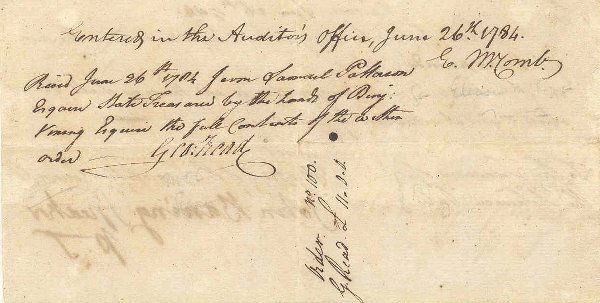 Entered in the Auditor's Office, June 26th 1784.
E. McComb
Recd June 26th 1784 from Samuel Patterson
Esquire State Treasurer by the hands of Benj:
Vining Esquire the full Contents of the within
order Geo: Read
Order no. 100.
G Read £